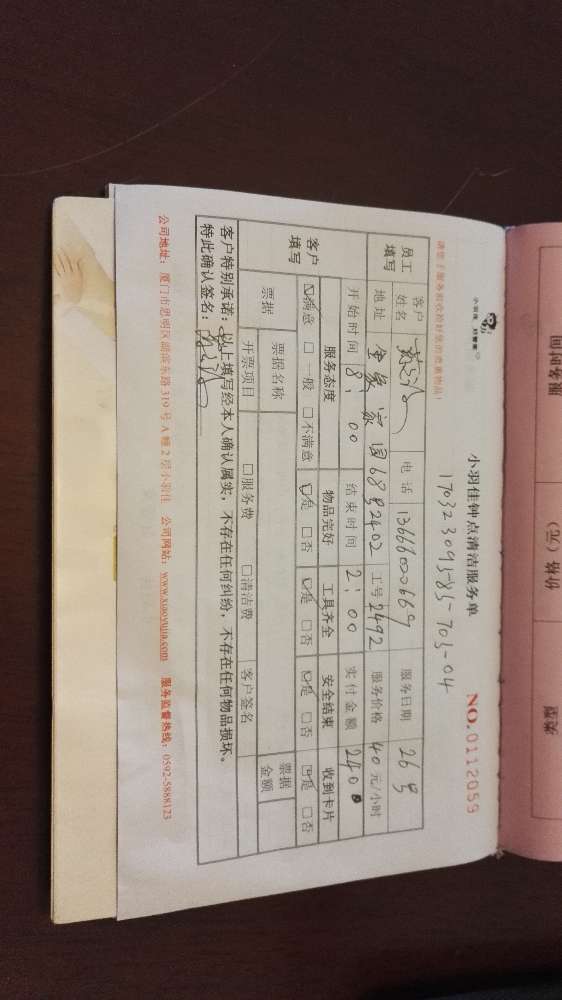 小羽佳 好管家
小羽佳钟点清洁服务单
NO.0112059
17032309J-85-703-04
请您于服务前收拾好您的贵重物品!
员工填写 客户姓名 电话 13666000669 服务日期 26号
地址 金象家园68号2402 工号 2492 服务价格 40元/小时
开始时间 8:00 结束时间 2:00 实付金额 240
客户填写 服务态度 物品完好 工具齐全 安全结束 收到卡片
☑满意 □一般 □不满意 ☑是 □否 ☑是 □否 ☑是 □否 ☑是 □否
票据 票据名称 票据金额
开票项目 □服务费 □清洁费 客户签名
客户特别承诺:以上填写经本人确认属实,不存在任何纠纷,不存在任何物品损坏。
特此确认签名:
公司地址:厦门市思明区湖滨东路319号A幢2层小羽佳 公司网站:www.xiaoyujia.com 服务监督热线:0592-5888123
服务时间
价格(元)
类型